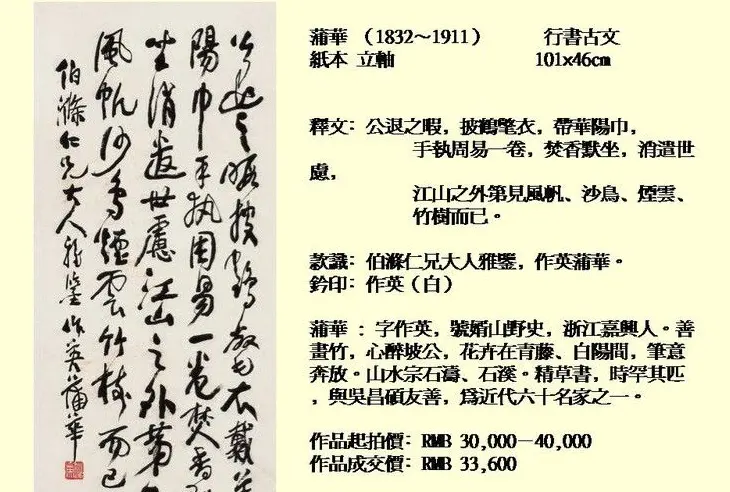 公退之暇披鶴氅衣戴
陽巾手执周易一卷焚香
坐消遣世慮江山之外第
風帆沙鳥煙雲竹樹而已
伯滌仁兄大人雅鑒 作英蒲華
蒲華 （1832～1911） 行書古文
紙本 立軸 101x46cm
釋文: 公退之暇，披鶴氅衣，帶華陽巾，
手執周易一卷，焚香默坐，消遣世
慮，
江山之外第見風帆、沙鳥、煙雲、
竹樹而已。
款識: 伯滌仁兄大人雅鑒，作英蒲華。
鈐印: 作英（白）
蒲華 : 字作英，號婿山野史，浙江嘉興人。善
畫竹，心醉坡公，花卉在青藤、白陽間，筆意
奔放。山水宗石濤、石溪。精草書，時罕其匹
，與吳昌碩友善，爲近代六十名家之一。
作品起拍價: RMB 30,000－40,000
作品成交價: RMB 33,600